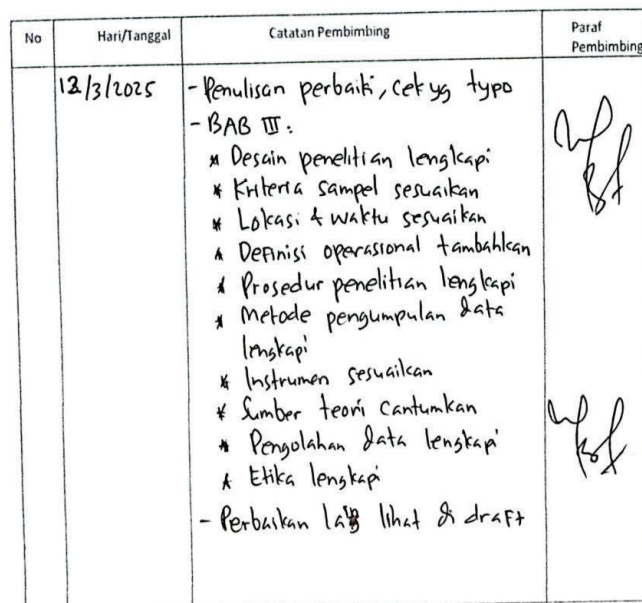 No Hari/Tanggal Catatan Pembimbing Paraf Pembimbing
12/3/2025 - Penulisan perbaiki, cek yg typo
- BAB III :
* Desain penelitian lengkapi
* Kriteria sampel sesuaikan
* Lokasi & waktu sesuaikan
* Definisi operasional tambahkan
* Prosedur penelitian lengkapi
* Metode pengumpulan data
lengkapi
* Instrumen sesuaikan
* Sumber teori cantumkan
* Pengolahan data lengkapi
* Etika lengkapi
- Perbaikan lihat di draft